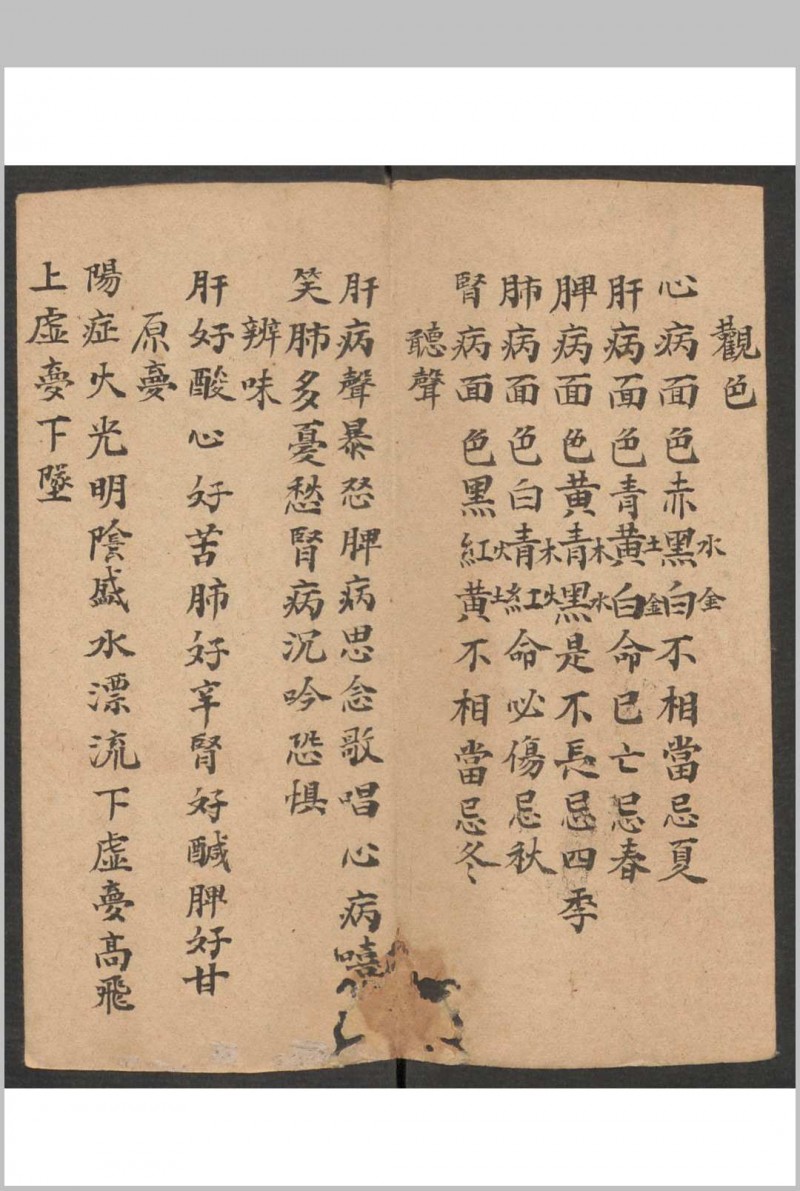 觀色
心病面色赤黑水白金不相當忌夏
肝病面色青黃土白金命已亡忌春
脾病面色黃青木黑水是不長忌四季
肺病面色白青木紅火命必傷忌秋
腎病面色黑紅火黃土不相當忌冬
聽聲
肝病聲暴怒脾病思念歌唱心病嘻
笑肺多憂愁腎病沉吟恐惧
辨味
肝好酸心好苦肺好辛腎好鹹脾好甘
原夢
陽症火光明陰盛水漂流下虛夢高飛
上虛夢下墜